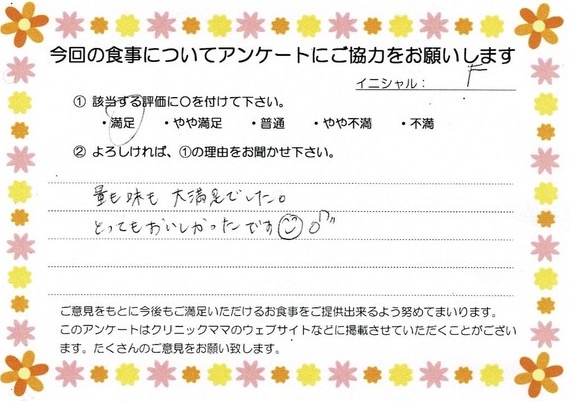 今回の食事についてアンケートにご協力をお願いします
イニシャル： F
① 該当する評価に○を付けて下さい。
・満足 ・やや満足 ・普通 ・やや不満 ・不満
② よろしければ、①の理由をお聞かせ下さい。
量も味も 大満足でした。
とってもおいしかったです
ご意見をもとに今後もご満足いただけるお食事をご提供出来るよう努めてまいります。
このアンケートはクリニックママのウェブサイトなどに掲載させていただくことがござい
ます。たくさんのご意見をお願い致します。